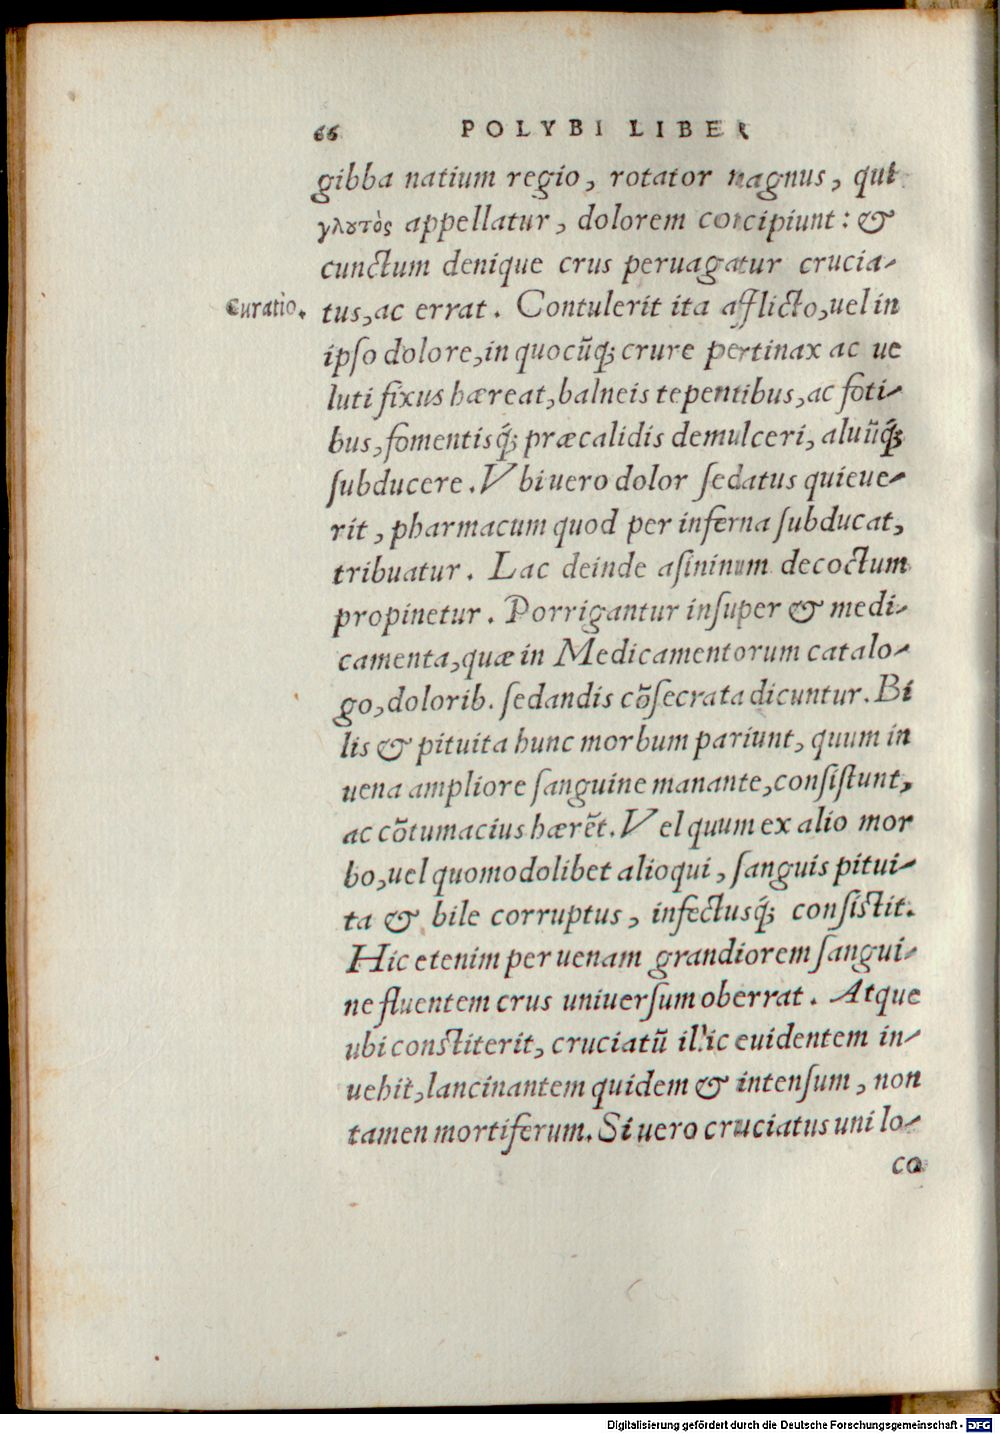 66 POLYBI LIBER
gibba natium regio, rotator magnus, qui
γλουτὸς appellatur, dolorem concipiunt: &
cunctum denique crus peruagatur crucia-
Curatio.
tus, ac errat. Contulerit ita afflicto, uel in
ipso dolore, in quocũq; crure pertinax ac ue
luti fixus hæreat, balneis tepentibus, ac foti-
bus, fomentisq́; præcalidis demulceri, aluũq́;
subducere. Vbi uero dolor sedatus quieue-
rit, pharmacum quod per inferna subducat,
tribuatur. Lac deinde asininum decoctum
propinetur. Porrigantur insuper & medi-
camenta, quæ in Medicamentorum catalo-
go, dolorib. sedandis cõsecrata dicuntur. Bi
lis & pituita hunc morbum pariunt, quum in
uena ampliore sanguine manante, consistunt,
ac cõtumacius hærẽt. Vel quum ex alio mor
bo, uel quomodolibet alioqui, sanguis pitui-
ta & bile corruptus, infectusq́; consistit.
Hic etenim per uenam grandiorem sangui-
ne fluentem crus uniuersum oberrat. Atque
ubi constiterit, cruciatũ illic euidentem in-
uehit, lancinantem quidem & intensum, non
tamen mortiferum. Si uero cruciatus uni lo-
co
Digitalisierung gefördert durch die Deutsche Forschungsgemeinschaft - DFG